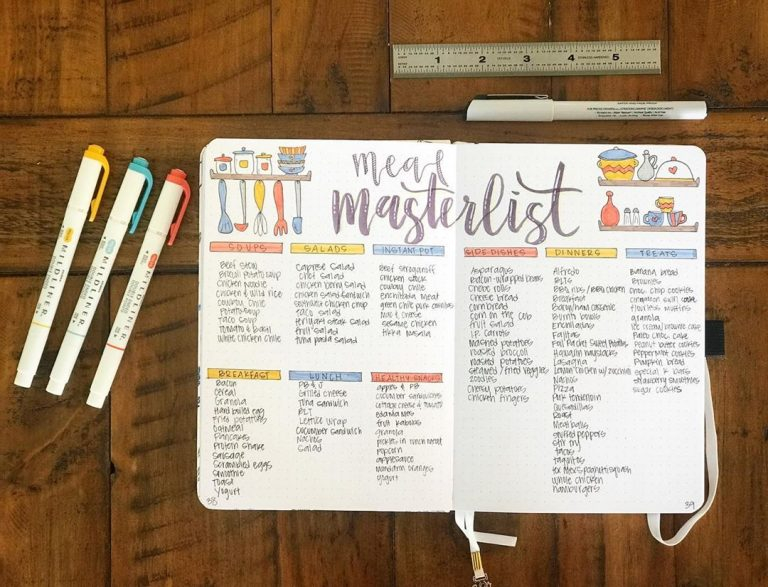 1 2 3 4 5
meal
masterlist
SOUPS
Beef Stew
Broccoli Potato Soup
Chicken Noodle
Chicken & Wild rice
Cowboy Chile
Potato Soup
Taco Soup
Tomato & Basil
White Chicken Chile
SALADS
Caprese Salad
Chef Salad
Chicken Berry Salad
Chicken Salad Sandwich
Southwest Chicken Crisp
Taco Salad
Teriyaki Steak Salad
Fruit Salad
Tuna Pasta Salad
INSTANT POT
Beef Stroganoff
Chicken Stock
Cowboy Chile
Enchilada Meat
Green Chile Pork Carnitas
Mac & Cheese
Sesame Chicken
Tikka Masala
BREAKFAST
Bacon
Cereal
Granola
Hard boiled egg
Fried Potatoes
Oatmeal
Pancakes
Protein Shake
Sausage
Scrambled Eggs
Smoothie
Toast
Yogurt
LUNCH
PB & J
Grilled Cheese
Tuna Sandwich
BLT
Lettuce Wrap
Cucumber Sandwich
Nachos
Salad
HEALTHY SNACKS
apples & PB
cucumber sandwiches
cottage cheese & tomato
edamames
fruit kabobs
granola
pickles in lunch meat
popcorn
applesauce
mandarin oranges
yogurt
38
SIDE DISHES
Asparagus
Bacon-wrapped beans
Cheese rolls
Cheese bread
Corn bread
Corn on the cob
Fruit salad
Mashed potatoes
Roasted broccoli
Roasted potatoes
Steamed/fried veggies
Zoodles
Cheesy potatoes
Chicken fingers
DINNERS
Alfredo
BLTS
BBQ ribs / BBQ chicken
Breakfast
Burrito bowls
Enchiladas
Fajitas
Foil Packet Sweet Potatoes
Hawaiin Haystacks
Lasagna
Lemon Chicken w/ Zucchini
Nachos
Pizza
Pork Tenderloin
Quesadillas
Roast
Meatballs
Stuffed peppers
Stir fry
Tacos
Taquitos
Tex Mex Spaghetti Squash
Whole Chicken
Hamburgers
TREATS
Banana Bread
Brownies
Choc Chip Cookies
Cinnamon Roll Cake
Flourless Muffins
Granola
Ice Cream/Brownie Cake
Paleo Choc Cake
Peanut Butter Cookies
Peppermint Cookies
Pumpkin Bread
Special K Bars
Strawberry Smoothies
Sugar Cookies
39
MILDLINER
MILDLINER
MILDLINER